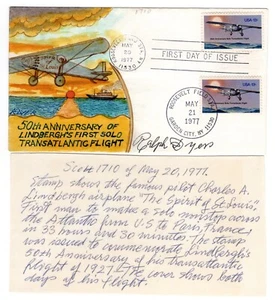 USA 13c
MAY
20
1977
FIRST DAY OF ISSUE
USA 13c
ROOSEVELT FIELD STA.
MAY
21
1977
GARDEN CITY, NY 11530
50TH ANNIVERSARY OF
LINDBERGH'S FIRST SOLO
TRANSATLANTIC FLIGHT
Ralph
Scott 1710 of May 20, 1977.
Stamp shows the famous pilot Charles A.
Lindbergh airplane "The Spirit of St Louis",
First man to make a solo nonstop across
the Atlantic from U.S. to Paris, France
in 33 hours and 30 minutes. The stamp
was issued to commemorate Lindbergh's
50th Anniversary of his transatlantic
flight of 1927. The cover shows both
days of his flight.